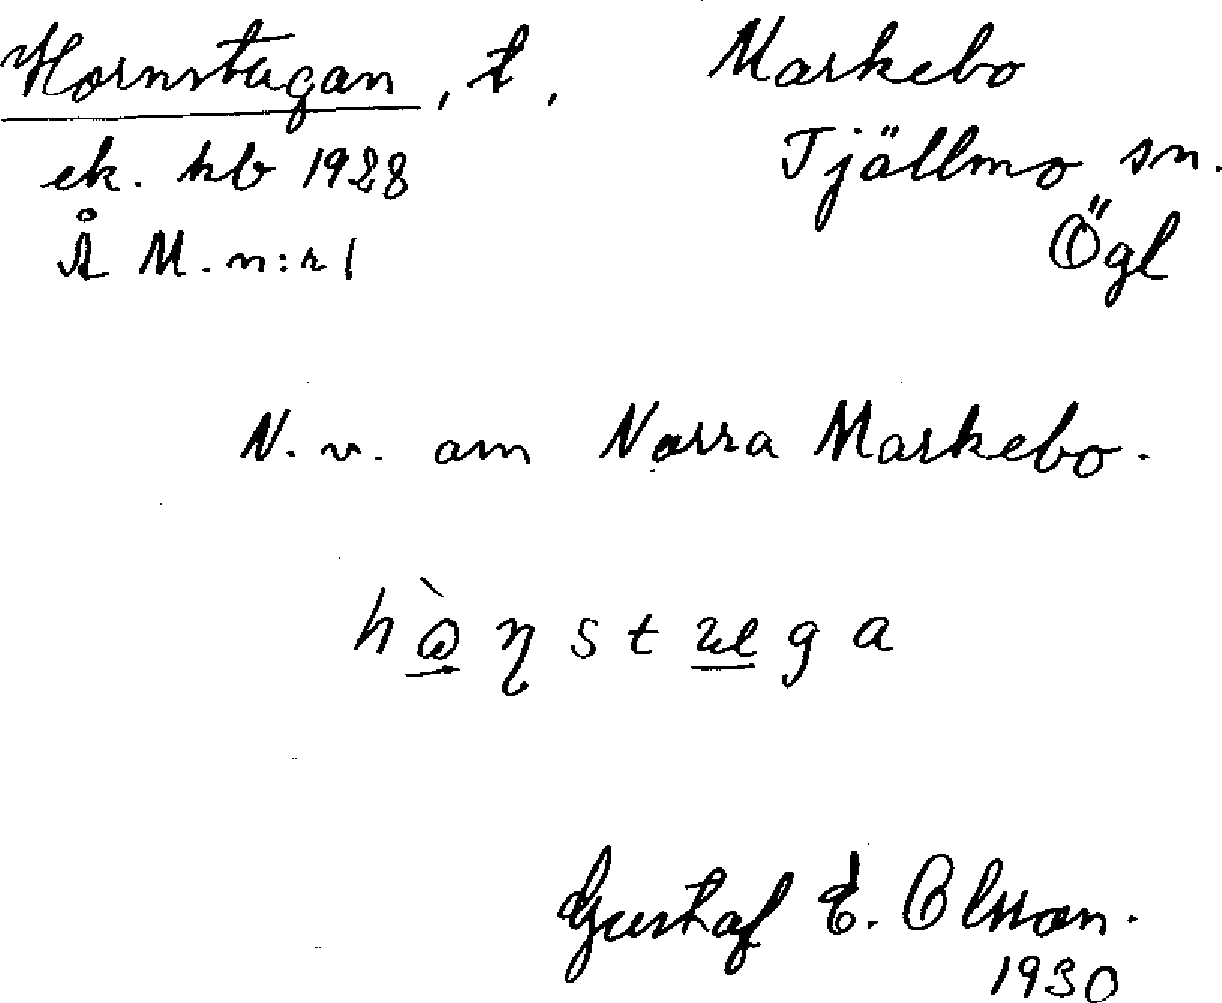 Hornstugan, t, Markebo
ek. kb 1928 Tjällmo sn.
Å M. n:r 1 Ögl
N. v. om Norra Markebo.
Gustaf E. Olsson.
1930